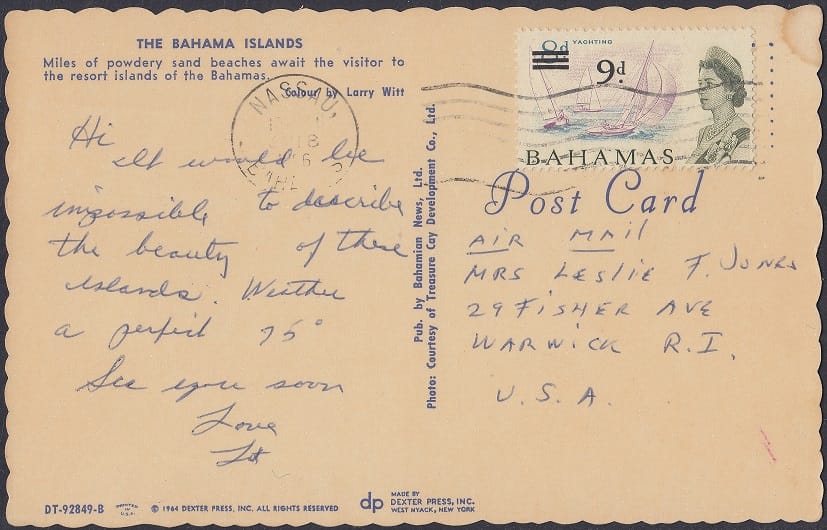 THE BAHAMA ISLANDS
Miles of powdery sand beaches await the visitor to
the resort islands of the Bahamas.
Colour by Larry Witt
NASSAU,
18
Hi
It would be
impossible to describe
the beauty of these
islands. Weather
a perfect 75°
See you soon
Love
Pub. by Bahamian News, Ltd.
Photo: Courtesy of Treasure Cay Development Co., Ltd.
8d YACHTING
9d.
BAHAMAS
Post Card
AIR MAIL
MRS LESLIE F. JONES
29 FISHER AVE
WARWICK R.I.
U.S.A.
DT-92849-B
PRINTED IN U.S.A.
© 1964 DEXTER PRESS, INC. ALL RIGHTS RESERVED
dp
MADE BY
DEXTER PRESS, INC.
WEST NYACK, NEW YORK